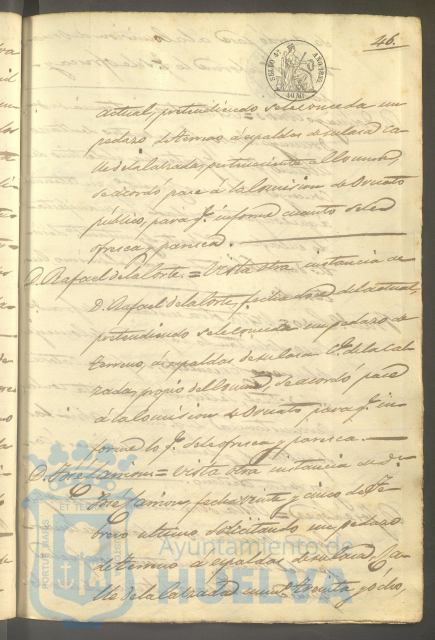 46.
SELLO 4º AÑO 1860 40 MS
actual, pretendiendo se le conceda un
pedazo de terreno á espaldas de su casa Ca-
lle de la Calzada, perteneciente al Comun,
se acordó pase á la Comision de Ornato
público, para q.e informe cuanto se le
ofrezca y parezca.
D. Rafael de la Corte. = Vista otra instancia de
D. Rafael de la Corte, fecha del actual,
pretendiendo se le conceda un pedazo de
terreno, á espaldas de su casa C.e de la Cal-
zada, propio del Comun, se acordó pase
á la Comision de Ornato para q.e in-
forme lo q.e se le ofrezca y parezca.
D. José = Vista otra instancia de D.n
José fecha veinte y cinco de Fe-
brero ultimo solicitando un pedazo
de terreno á espaldas de su casa Ca-
lle de la Calzada num.o treinta y ocho,
PORTUS MARIS ET TERRAE CUSTODIA
Ayuntamiento de
HUELVA